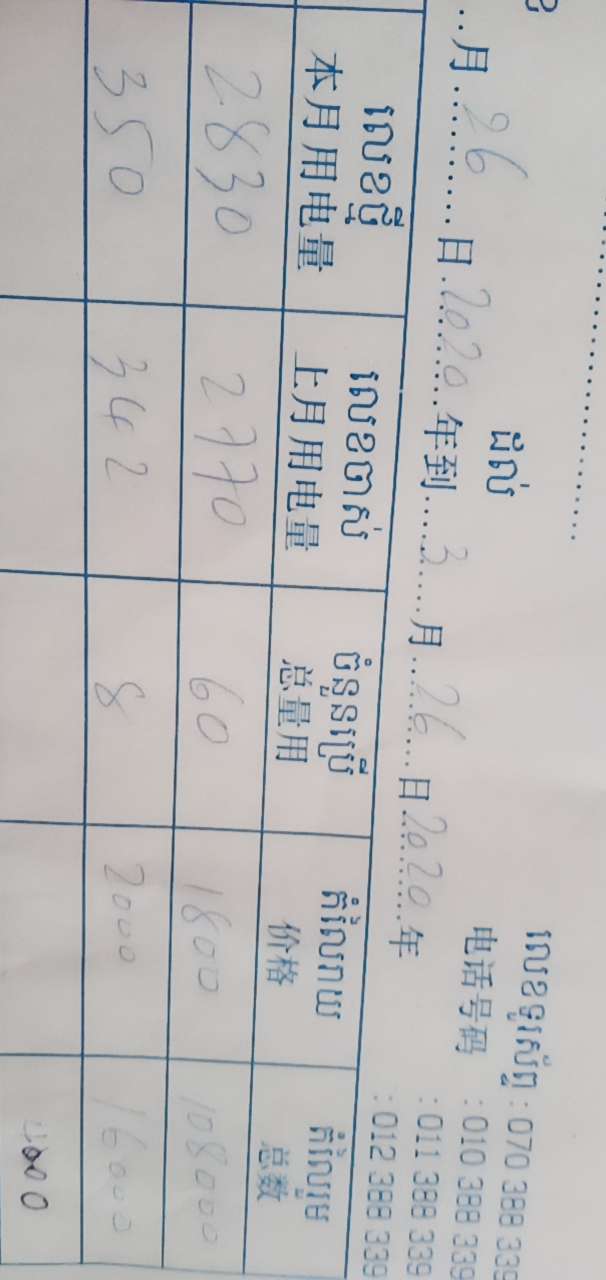 លេខទូរស័ព្ទ : 070 388 339
电话号码 : 010 388 339
: 011 388 339
: 012 388 339
វិល់
月 26 日 2020 年到 3 月 26 日 2020 年
លេខថ្មី លេខចាស់ ចំនួនប្រើ តំលៃរាយ តំលៃរួម
本月用电量 上月用电量 总量用 价格 总数
2830 2770 60 1800 108000
350 342 8 2000 16000